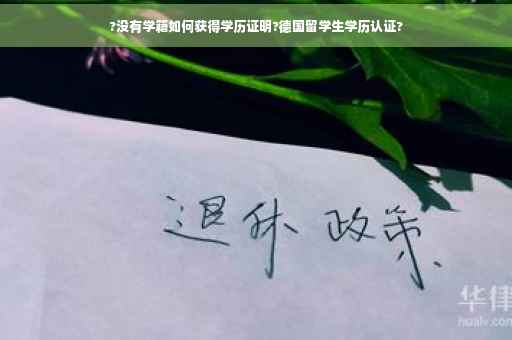 ?没有学籍如何获得学历证明?德国留学生学历认证?
退休 政策
华律
hualv.com